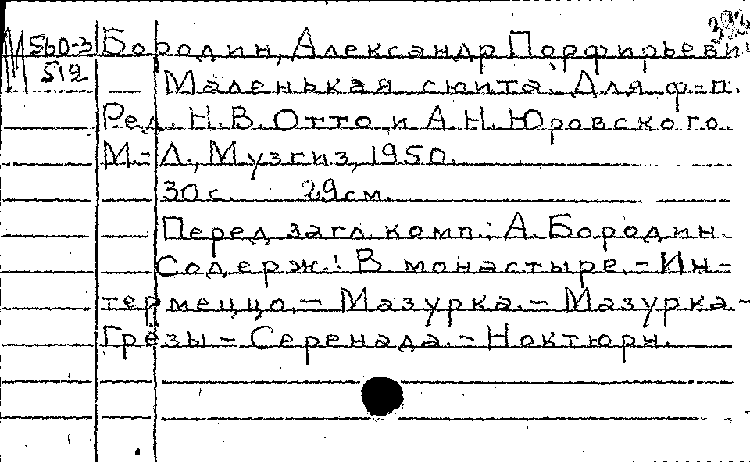 393
М 560-3 Бородин, Александр Порфирьеви
512
Маленькая сюита. Для ф-п.
Ред. Н.В. Отто и А.Н. Юровского.
М-Л., Музгиз, 1950.
30 с. 29 см.
Перед загл. комп.: А. Бородин.
Содерж.: В монастыре. - Ин-
термеццо. - Мазурка. - Мазурка. -
Грёзы - Серенада. - Ноктюрн.